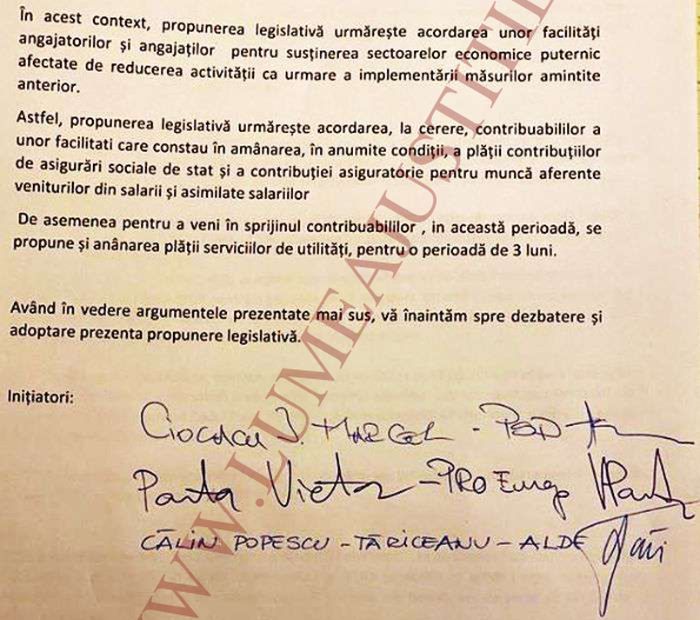 În acest context, propunerea legislativă urmărește acordarea unor facilități
angajatorilor și angajaților pentru susținerea sectoarelor economice puternic
afectate de reducerea activității ca urmare a implementării măsurilor amintite
anterior.
Astfel, propunerea legislativă urmărește acordarea, la cerere, contribuabililor a
unor facilitati care constau în amânarea, în anumite condiții, a plății contribuțiilor
de asigurări sociale de stat și a contribuției asiguratorie pentru muncă aferente
veniturilor din salarii și asimilate salariilor
De asemenea pentru a veni în sprijinul contribuabililor , in această perioadă, se
propune și anânarea plății serviciilor de utilități, pentru o perioadă de 3 luni.
Având în vedere argumentele prezentate mai sus, vă înaintăm spre dezbatere și
adoptare prezenta propunere legislativă.
Inițiatori:
Ciolacu I. Marcel - PSD
Ponta Victor - PRO Europa
CĂLIN POPESCU - TĂRICEANU - ALDE
WWW.LUMEAJUSTITIEI